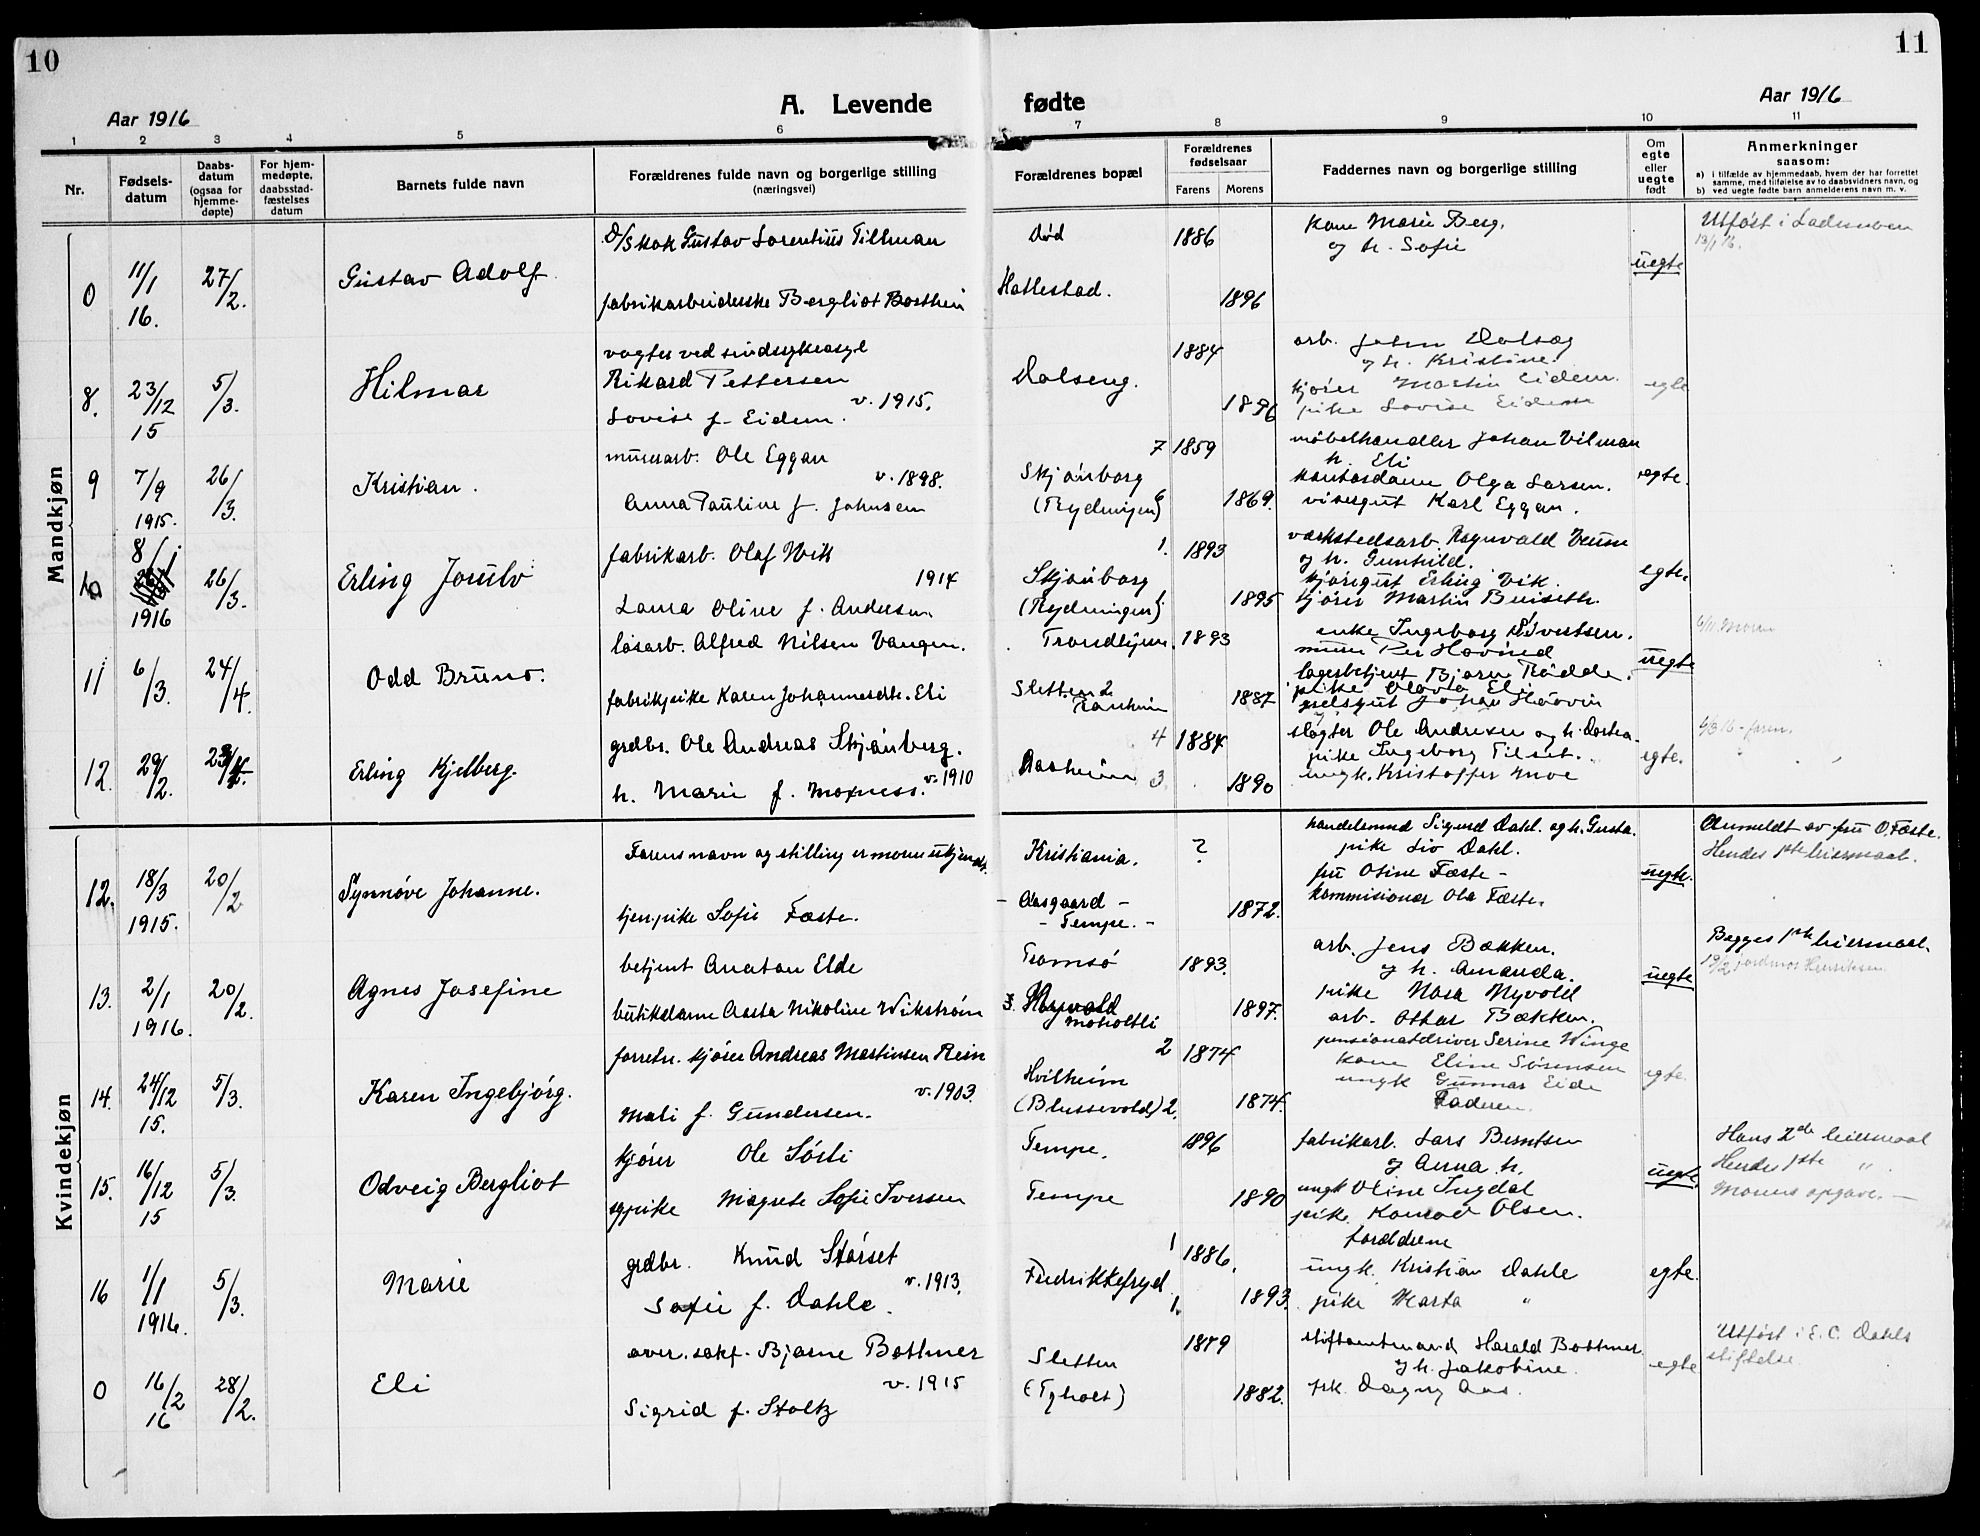 10
11
A. Levende fødte
Aar 1916
Aar 1916
1 2 3 4 5 6 7 8 9 10 11
Nr.
Fødsels-
datum
Daabs-
datum
(ogsaa for
hjemme-
døpte)
For hjem-
medøpte,
daabsstad-
fæstelses
datum
Barnets fulde navn
Forældrenes fulde navn og borgerlige stilling
(næringsvei)
Forældrenes bopæl
Forældrenes
fødselsaar
Farens Morens
Faddernes navn og borgerlige stilling
Om
egte
eller
uegte
født
Anmerkninger
saasom:
a) i tilfælde av hjemmedaab, hvem der har forrettet
samme, med tilføielse av to daabsvidners navn, og
b) ved uegte fødte barn anmelderens navn m. v.
Mandkjøn
0 11/1 16. 27/2. Gustav Adolf
Gustav Lorentius Tillman
fabrikarbeiderske Bergliot
Død 1886
Hallestad. 1896
kone Marie Berg.
og h. Sofie
uegte
8. 23/12 15 5/3. Hilmar
vogter ved sindsykeasyl
Rikard Pettersen
v. 1915.
Lovise f. Eidem.
Dalseng. 1884
1896
arb. John
og h. Kristine.
kjører Martin Eidem.
pike Lovise Eidem
egte
9 7/9 1915. 26/3. Kristian.
murerarb. Ole Eggan
v. 1898.
Anna Pauline f. Johnsen
7 1859
Skjånborg
1869.
møbelhandler Johan Vilman
h. Eli
kontordame Olga Larsen.
visergut Karl Eggan.
egte.
10 8/1 1916 26/3. Erling
fabrikarb. Olaf Wik
1914
Laura Oline f. Andersen.
1. 1893
Skjånborg
1895
værkstedsarb. Ragnvald
og h. Gunhild.
kjøregut Erling Vik.
kjører Martin
egte.
11 6/3. 24/4. Odd Bruno.
løsarb. Alfred Nilsen Vangen.
fabrikpike Karen Johannesdtr. Eli
Trondhjem. 1893
Sletten 2
Ranheim 1887
enke Ingeborg Sivertsen.
lagerbetjent Bjarne Rødde.
pike Olovta Eli
uegte
6/11. Moren
12. 29/2. Erling Kjelberg.
grdbr. Ole Andreas Skjånberg.
v. 1910
h. Marie f. Moxness.
4 1884
Aasheim 3 1890
slagter Ole Andresen og h. Dortea.
pike Ingeborg Tilset.
ungk. Kristoffer Moe
egte.
Kvindekjøn
12. 18/3 1915. 20/2 Synnøve Johanne.
Farens navn og stilling er moren ukjendt.
tjen.pike Sofie Fæste.
Kristiania. ?
- Aasgaard -
- Tempe. - 1872.
handelsmand Sigurd Dahl. og h. Gusta.
pike Liv Dahl.
fru Otine Fæste -
kommisionær Ola Fæste.
uegte.
Anmeldt av fru O. Fæste.
Hendes 1ste leiermaal.
13. 2/1 1916. 20/2. Agnes Josefine
betjent Anaton Elde
butikdame Aasta Nikoline Wikstrøm
Tromsø 1893.
Moholtli 1897.
arb. Jens Bækken.
og h. Amanda.
pike Nora Myvold
arb. Ottar Bækken.
uegte
Begges 1ste leiermaal.
19/2 jordmor Henriksen
14. 24/12 15. 5/3. Karen Ingebjørg.
forretn. kjører Andreas Martinsen Rein
v. 1903.
Mali f. Gundersen.
2 1874
Hvilheim
(Blussevold) 2. 1874.
pensionatdriver Serine Winge
kone Eline Sørensen
ungk Gunnar Eide
Faderen.
egte.
15. 16/12 15 5/3. Odveig Bergliot
kjører Ole Sørli
sypike Magrete Sofie Iversen
Tempe. 1896
Tempe 1890
fabrikarb. Lars Berntsen
og Anna h.
ungk Oline Ingdal
pike. Konrad Olsen.
uegte.
Hans 2de leiermaal
Hendes 1ste "
Morens opgave. -
16 1/1 1916. 5/3. Marie
grdbr. Knud Størset
v. 1913.
Sofie f. Dahle.
1 1886.
Fredrikkefryd
1. 1893.
Forældrene
ungk. Kristian Dahle
pike Marta "
egte.
0 16/2 16 28/2. Eli
over.sakf. Bjarne Bothner
v. 1915
Sigrid f. Stoltz
Sletten 1879
(Tyholt) 1882.
stiftamtmand Harald Bothner
og h. Jakobine.
pk. Dagny Aas.
egte
Utført i E. C. Dahls
stiftelse.